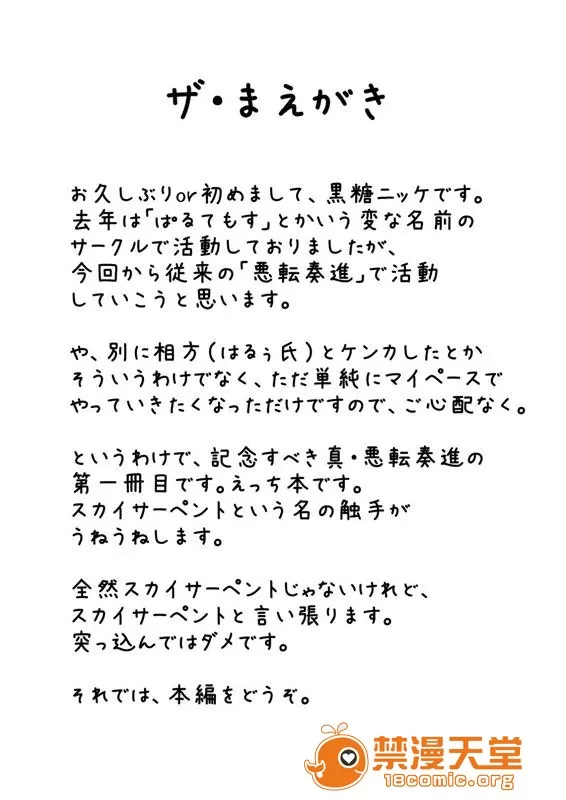 ザ・まえがき
お久しぶりor初めまして、黒糖ニッケです。
去年は「ぱるてもす」とかいう変な名前の
サークルで活動しておりましたが、
今回から従来の「悪転奏進」で活動
していこうと思います。
や、別に相方(はるぅ氏)とケンカしたとか
そういうわけでなく、ただ単純にマイペースで
やっていきたくなっただけですので、ご心配なく。
というわけで、記念すべき真・悪転奏進の
第一冊目です。えっち本です。
スカイサーペントという名の触手が
うねうねします。
全然スカイサーペントじゃないけれど、
スカイサーペントと言い張ります。
突っ込んではダメです。
それでは、本編をどうぞ。
禁漫天堂
18comic.org